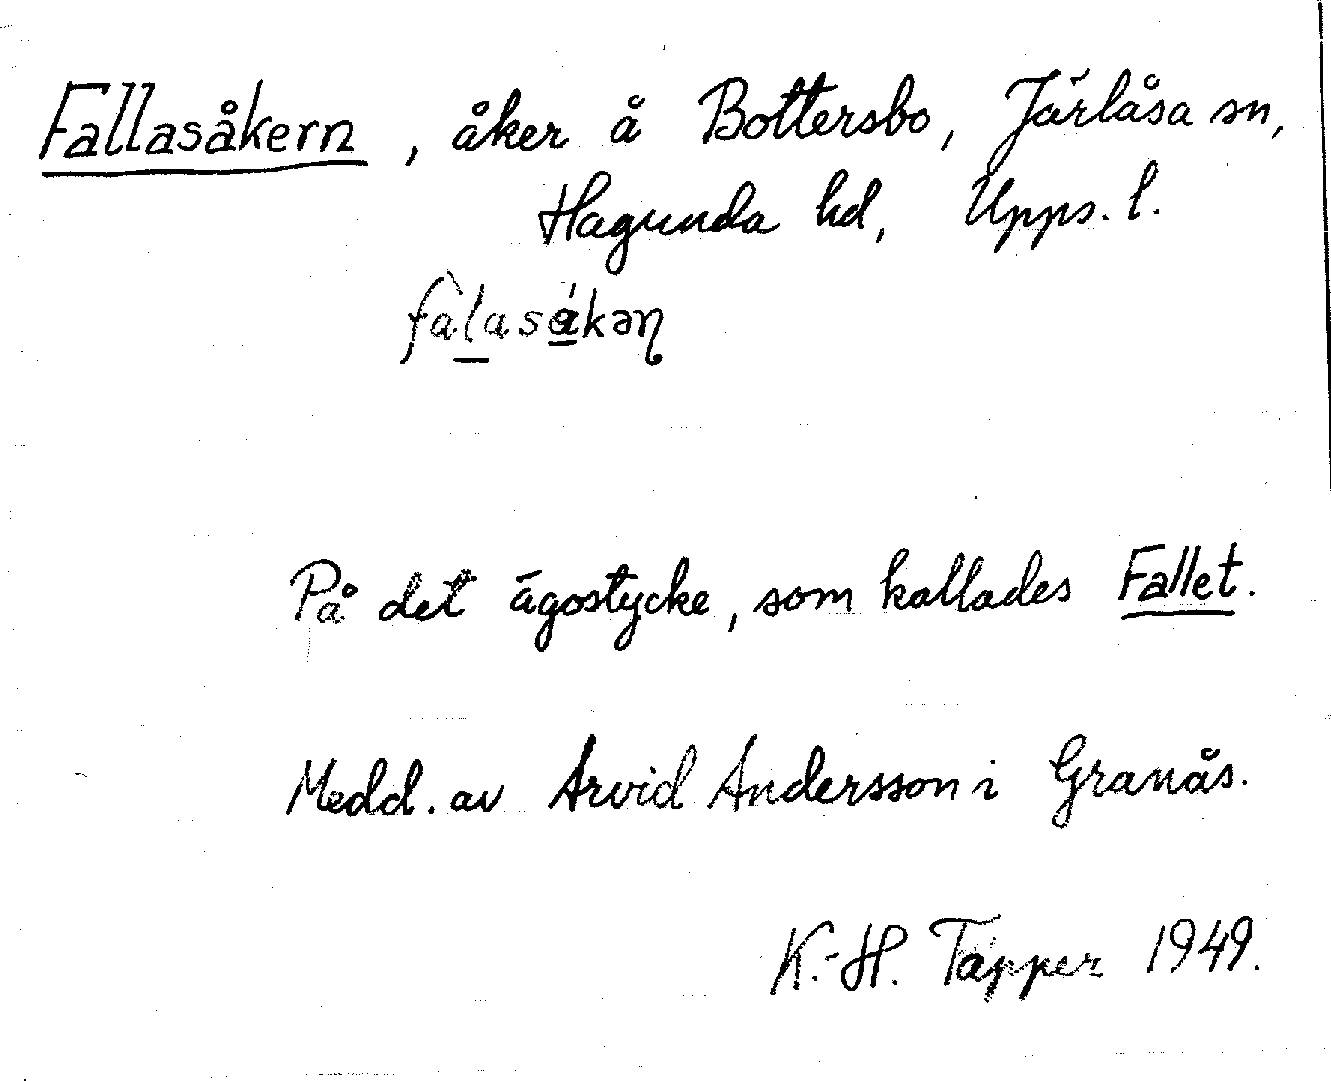 Fallasåkern, åker å Bottersbo, Järlåsa sn,
Hagunda hd, Upps. l.
fàlasákəɳ
På det ägostycke, som kallades Fallet.
Medd. av Arvid Andersson i Granås.
K.-H. Tapper 1949.